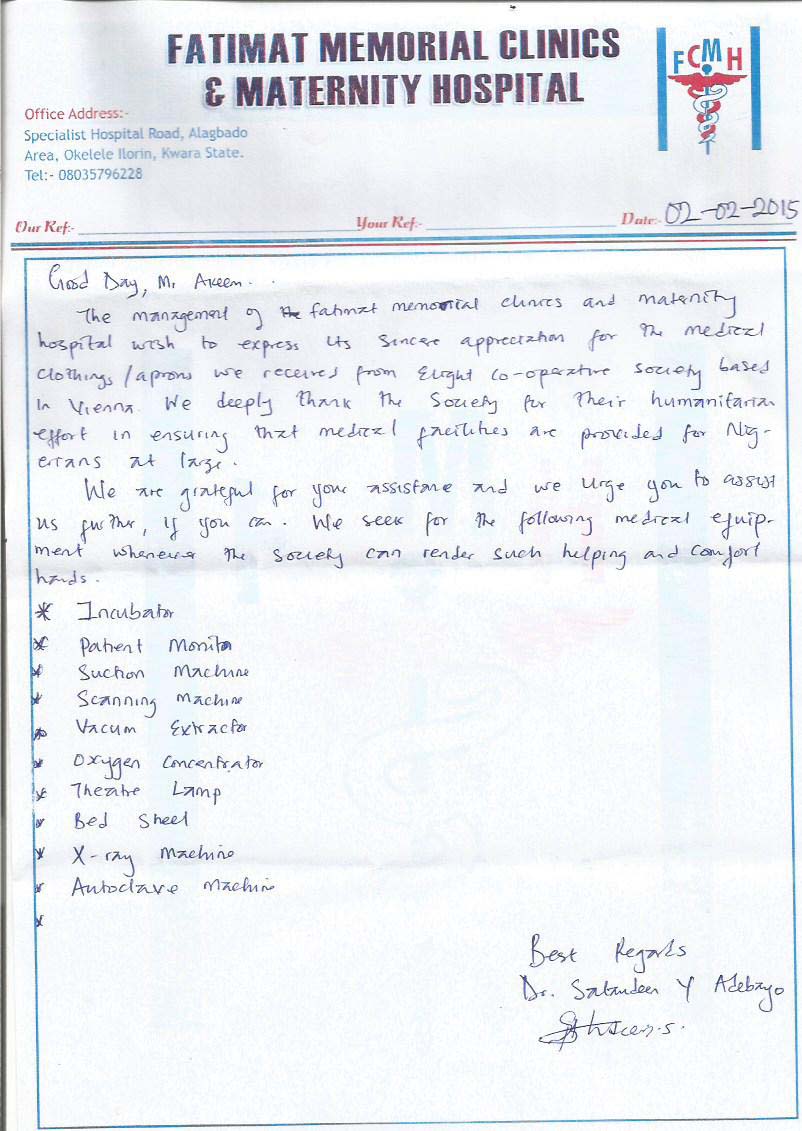 FATIMAT MEMORIAL CLINICS
& MATERNITY HOSPITAL
FCMH
Office Address:-
Specialist Hospital Road, Alagbado
Area, Okelele Ilorin, Kwara State.
Tel:- 08035796228
Our Ref:- Your Ref:- Date:- 02-02-2015
Good Day, Mr. Akeem.
The management of fatimat memorial clinics and maternity
hospital wish to express its sincere appreciation for the medical
clothings/aprons we received from Elight co-operative society based
in Vienna. We deeply thank the Society for their humanitarian
effort in ensuring that medical facilities are provided for Nig-
erians at large.
We are grateful for your assistance and we urge you to assist
us further, if you can. We seek for the following medical equip-
ment whenever the society can render such helping and comfort
hands.
* Incubator
* Patient Monitor
* Suction Machine
* Scanning Machine
* Vacum Extractor
* Oxygen Concentrator
* Theatre Lamp
* Bed Sheet
* X-ray Machine
* Autoclave Machine
*
Best Regards
Dr. Y Adebayo